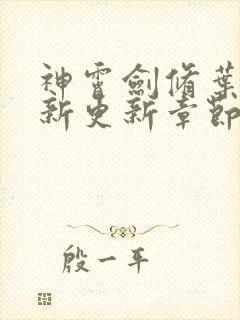 神雷劍脩葉
新更新章節
殷一平